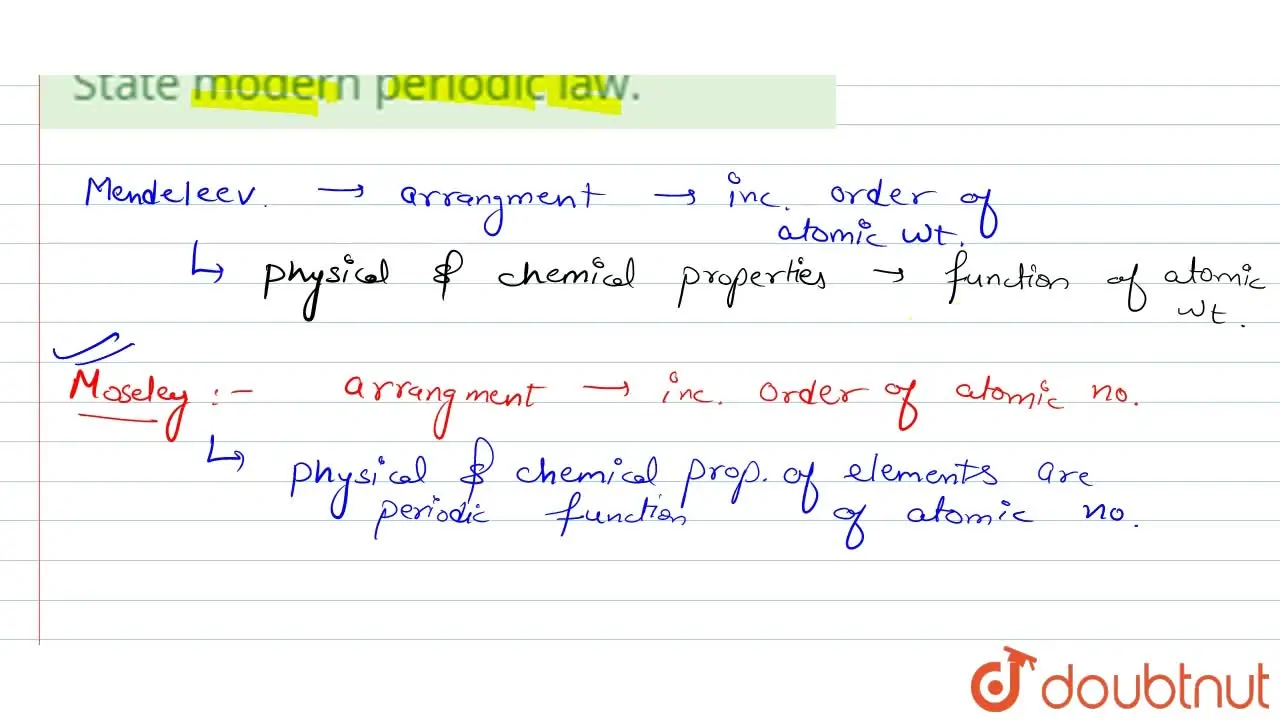 State modern periodic law.
Mendeleev. → arrangment → inc. order of
atomic wt.
↳ physical & chemical properties → function of atomic
wt.
Moseley :- arrangment → inc. order of atomic no.
↳ physical & chemical prop. of elements are
periodic function of atomic no.
doubtnut